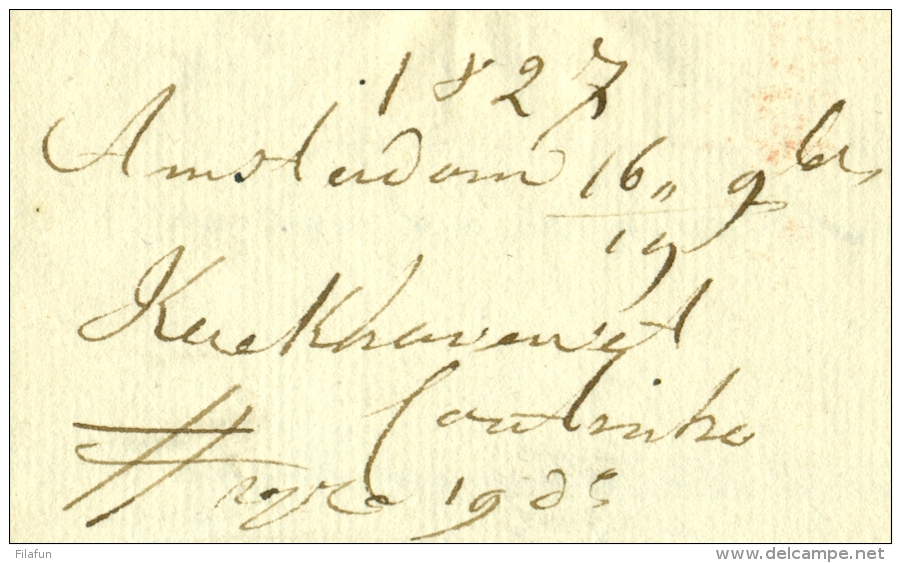 1827
Amsterdam 16„ 9ber
19
Kerkhoven &
Coutinho
19 ds
Filafun
www.delcampe.net